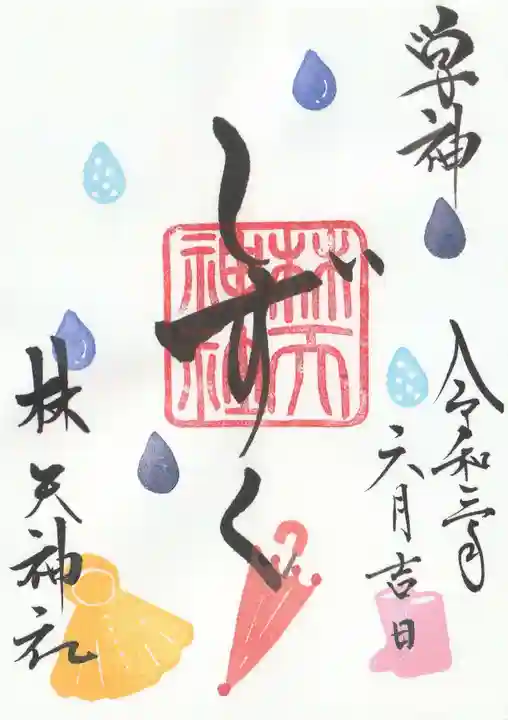 学神
令和三年
六月吉日
しずく
林天神社
林天神社